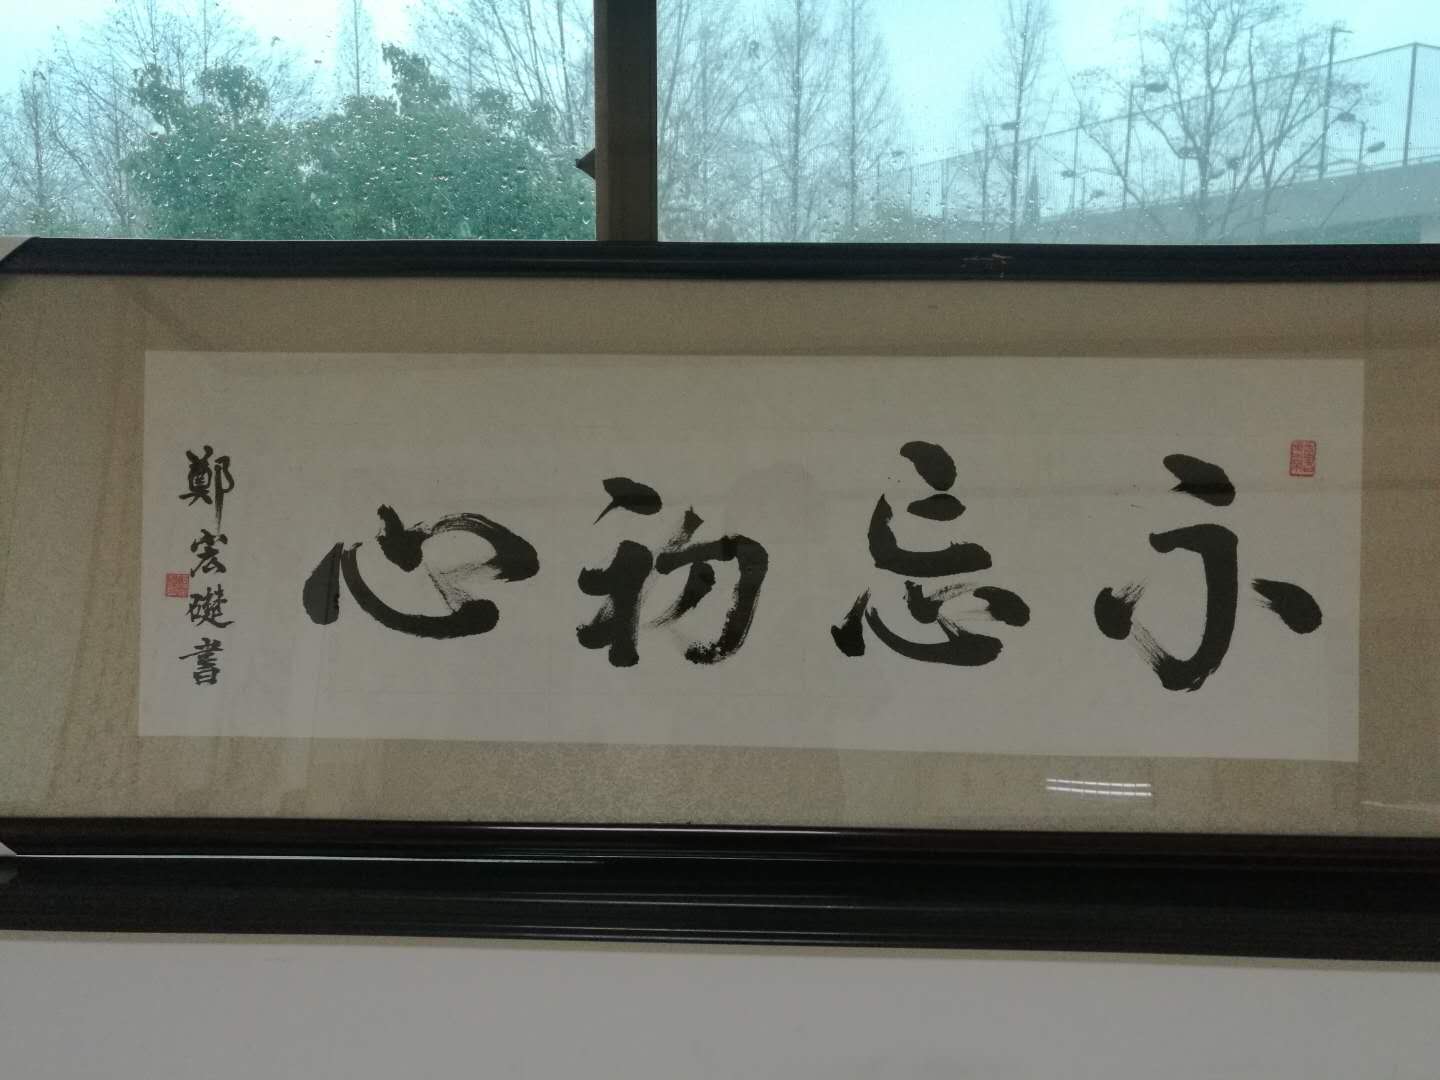 不忘初心
鄭宏礎書